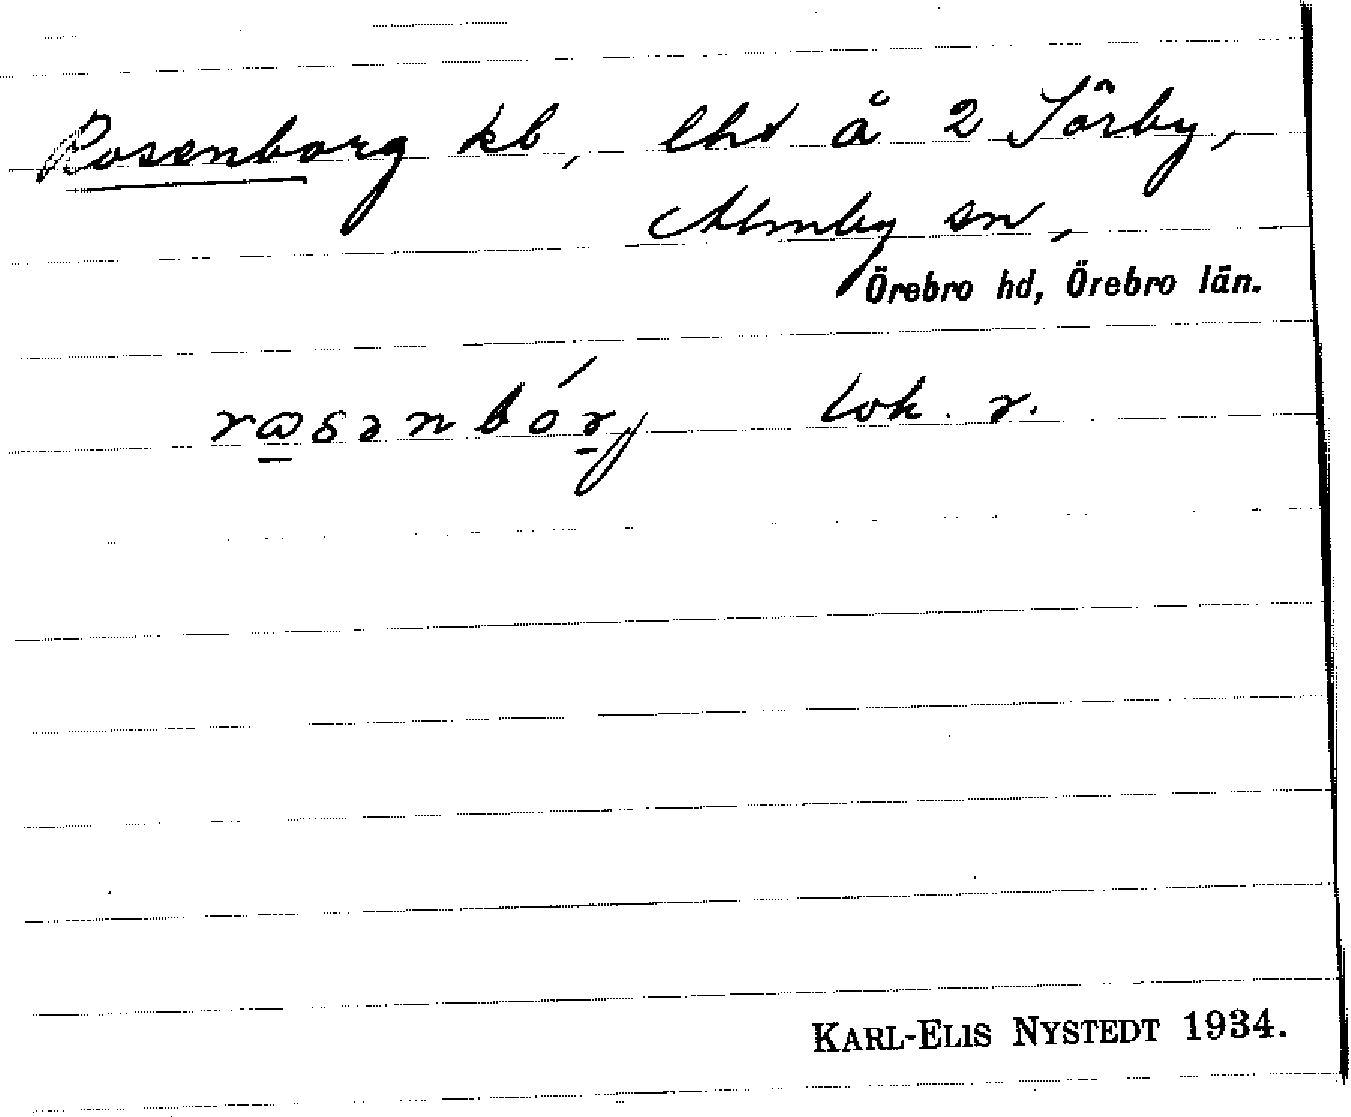 Rosenborg kb, lht å 2 Sörby,
Almby sn,
Örebro hd, Örebro län.
rωsənbórj lok. r.
KARL-ELIS NYSTEDT 1934.